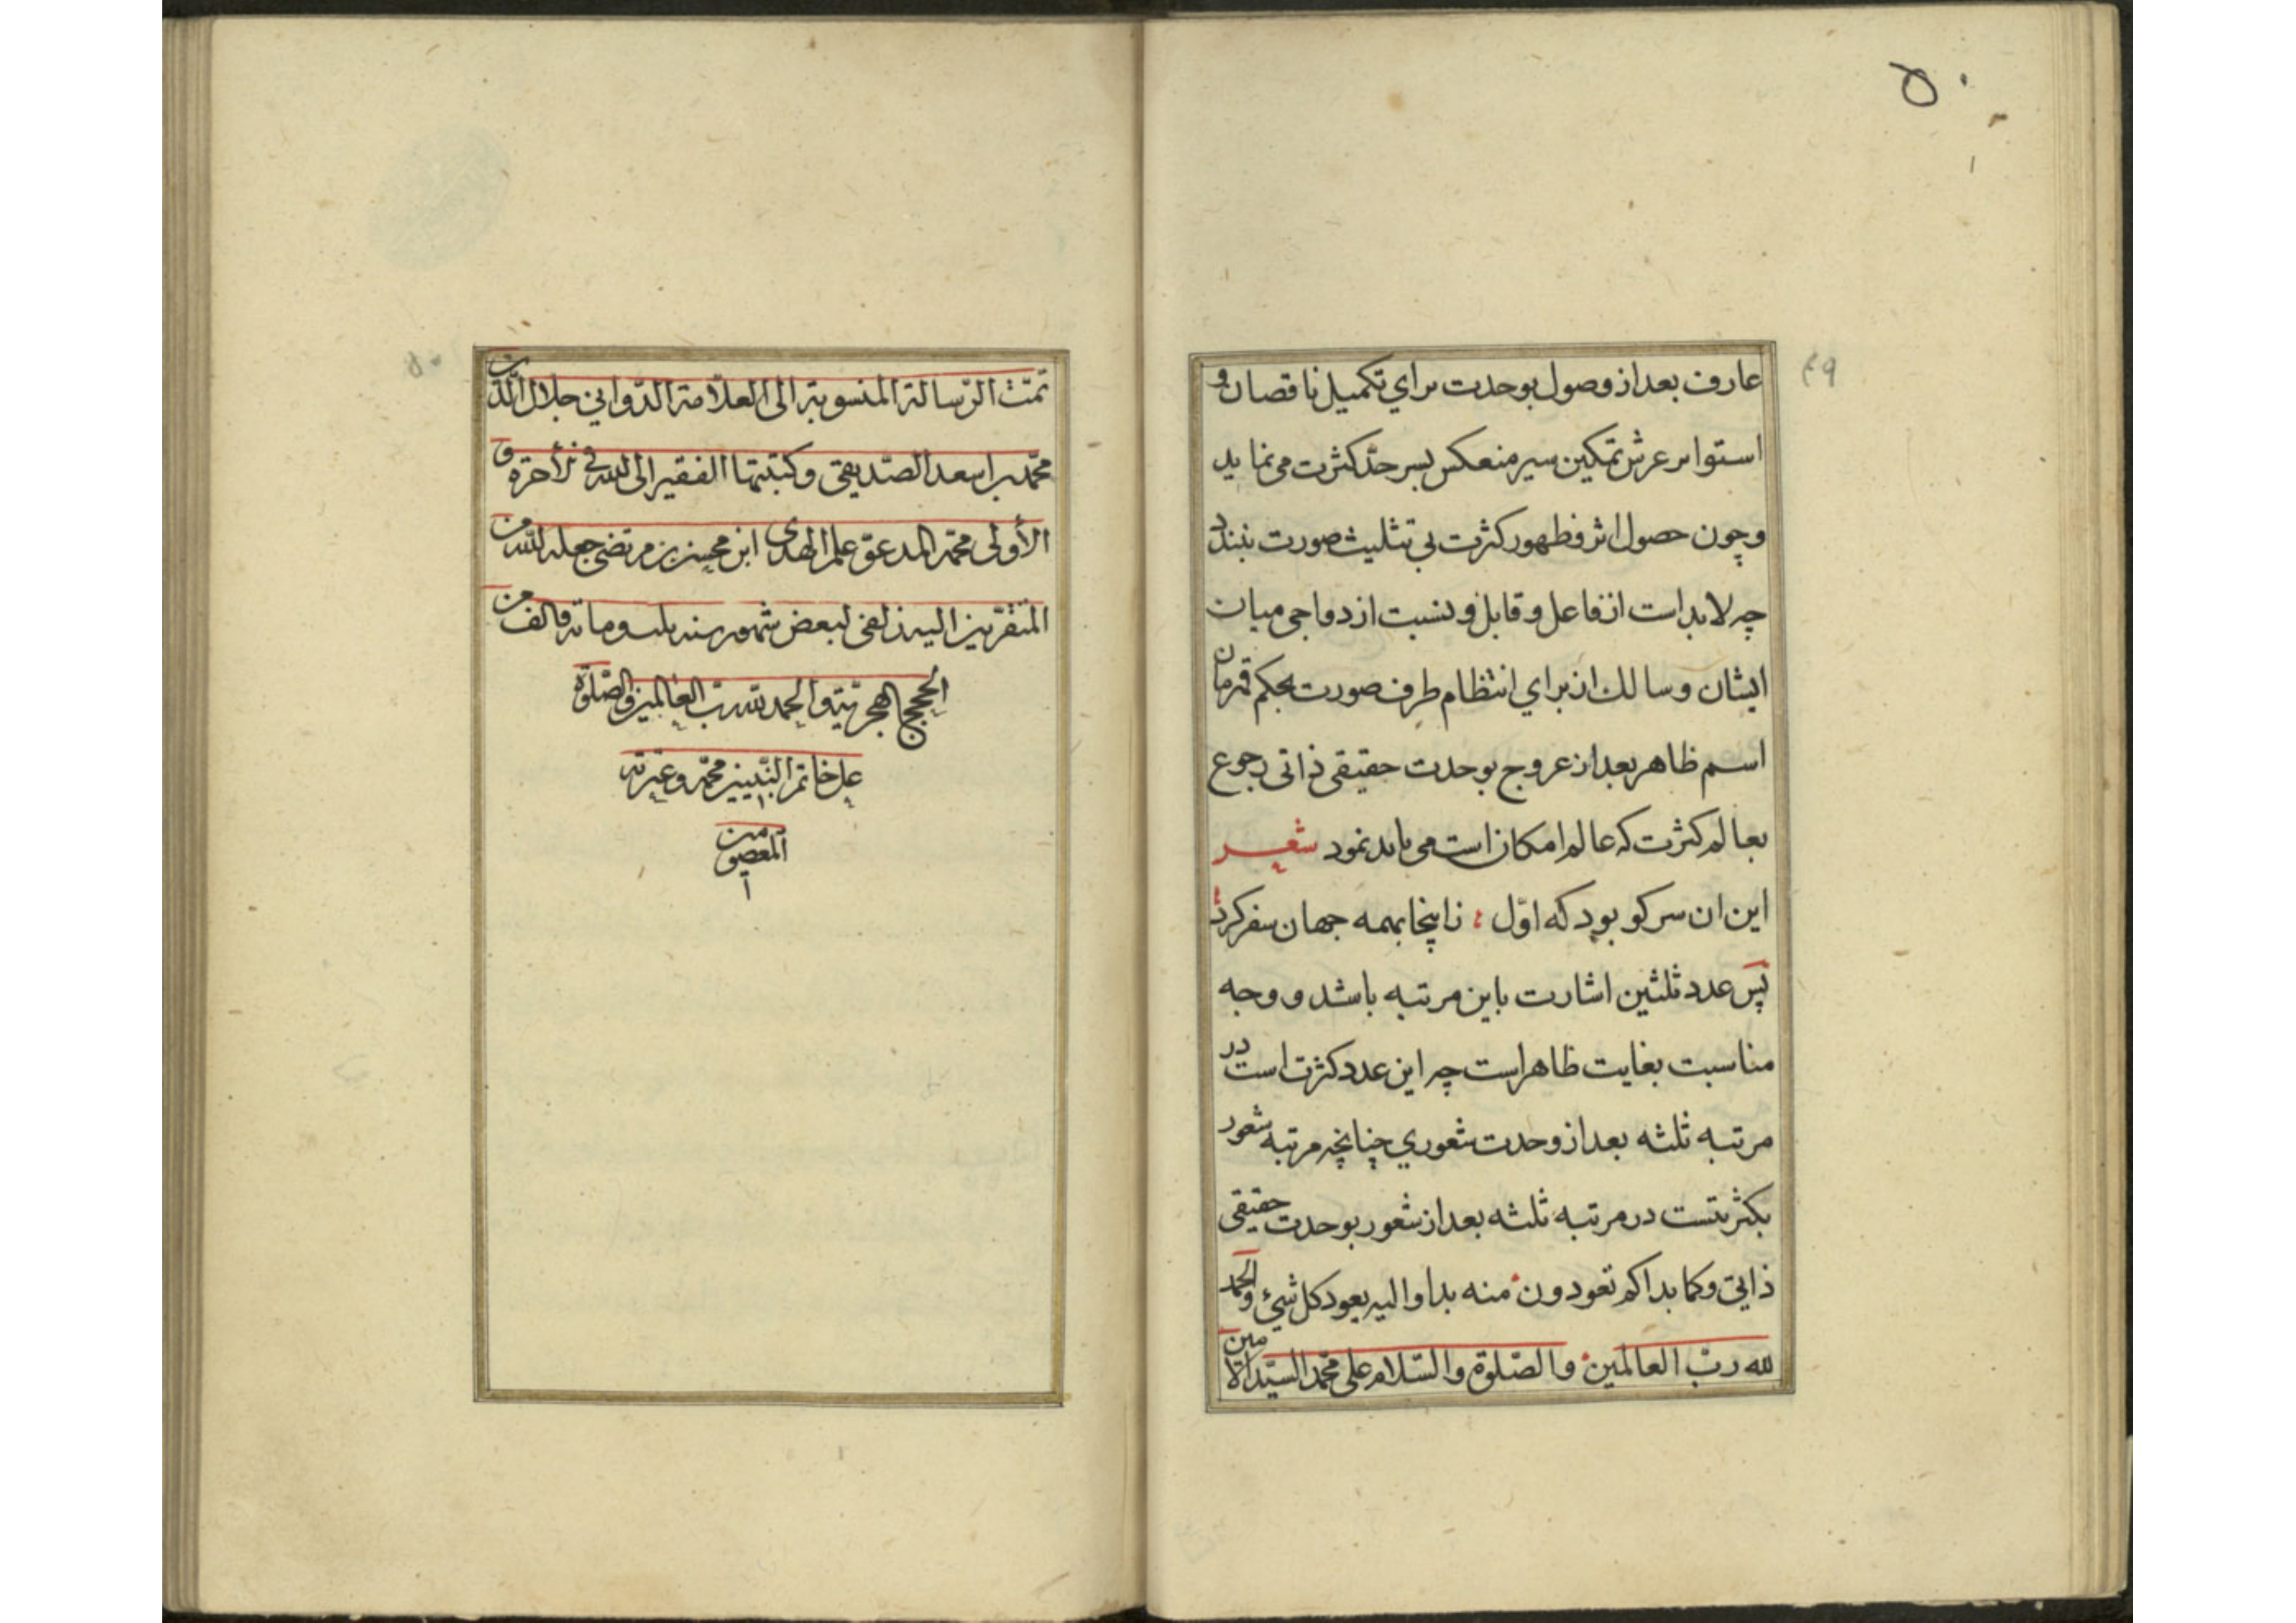 ۵۰
۴۹
عارف بعد از وصول بوحدت برای تکمیل ناقصان و
استوا بر عرش تمکین سیر منعکس بسر حدّ کثرت می نماید
و چون حصول اثر و ظهور کثرت بی تثلیث صورت نبندد
چه لا بد است از فاعل و قابل و نسبت ازدواجی میان
ایشان و سالک از برای انتظام طرف صورت بحکم قهرمان
اسم ظاهر بعد از عروج بوحدت حقیقی ذاتی رجوع
بعالم کثرت که عالم امکان است می باید نمود شعر
این ان سر کو بود که اوّل زاینجا بهمه جهان سفر کرد
پس عدد ثلثین اشارت باین مرتبه باشد و وجه
مناسبت بغایت ظاهر است چه این عدد کثرت است در
مرتبه ثلثه بعد از وحدت شعوری چنانچه مرتبه شعور
بکثرتست در مرتبه ثلثه بعد از شعور بوحدت حقیقی
ذاتی و کما بداکم تعودون منه بدا و الیه یعود کل شیء و الحمد
لله ربّ العالمین والصّلوة والسّلام علی محمّد السیّد الامین
۵۰
تمّت الرّسالة المنسوبة الی العلّامة الدّوانی جلال الدّین
محمّد بن اسعد الصّدیقی و کتبتها الفقیر الی الله فی الأخرة و
الأولی محمّد المدعوّ علم الهدی ابن محسن بن مرتضی جعله الله من
المتقرّبین الیه زلفی لبعض شهور سنه ومائة والف من
الحجج الهجریّة والحمد لله ربّ العالمین والصّلوة
علی خاتم النّبیین محمّد وعترته
المعصومین